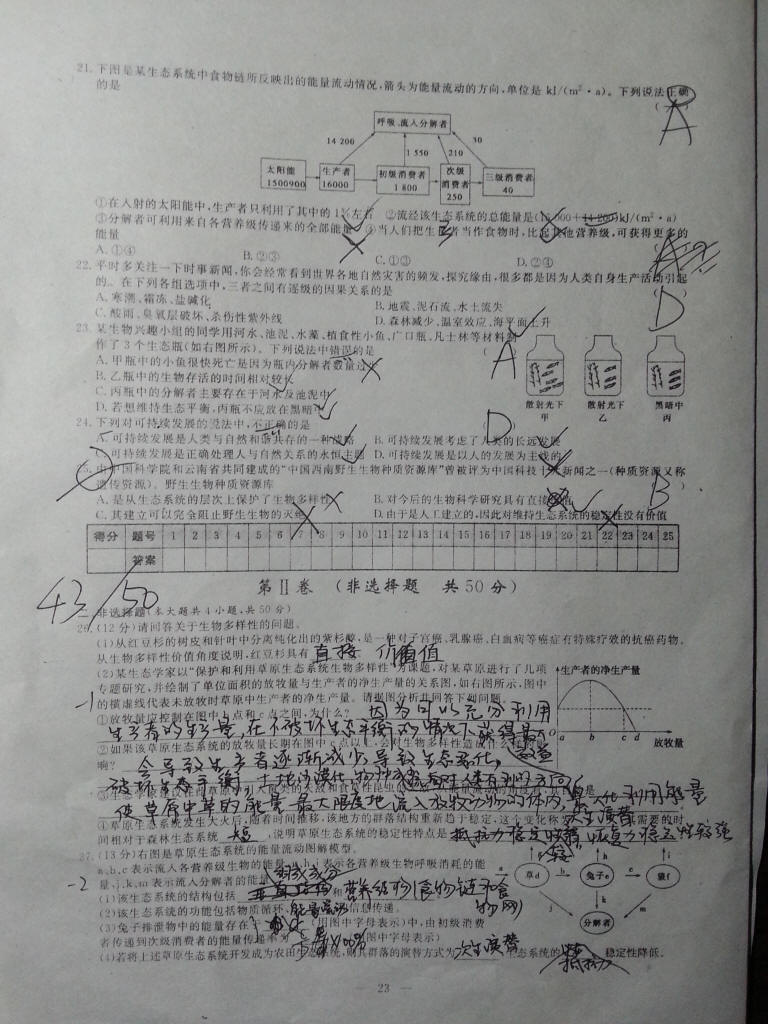 21. 下图是某生态系统中食物链所反映出的能量流动情况,箭头为能量流动的方向,单位是 kJ/(m²·a)。下列说法正确
的是 ( )
A
呼吸、流入分解者
14 200
1 550
210
30
太阳能
1500900
生产者
16000
初级消费者
1 800
次级
消费者
250
三级消费者
40
①在入射的太阳能中,生产者只利用了其中的 1%左右 ②流经该生态系统的总能量是(16 000+14 200)kJ/(m²·a)
③分解者可利用来自各营养级传递来的全部能量 ④当人们把生产者当作食物时,比起其他营养级,可获得更多的
能量
A. ①④ B. ②③ C. ①③ D. ②④
22. 平时多关注一下时事新闻,你会经常看到世界各地自然灾害的频发,探究缘由,很多都是因为人类自身生产活动引起
的。在下列各组选项中,三者之间有逐级的因果关系的是 ( )
D
A. 寒潮、霜冻、盐碱化 B. 地震、泥石流、水土流失
C. 酸雨、臭氧层破坏、杀伤性紫外线 D. 森林减少、温室效应、海平面上升
23. 某生物兴趣小组的同学用河水、池泥、水藻、植食性小鱼、广口瓶、凡士林等材料制
作了 3 个生态瓶(如右图所示)。下列说法中错误的是 (
A
A. 甲瓶中的小鱼很快死亡是因为瓶内分解者数量过少
B. 乙瓶中的生物存活的时间相对较长
C. 丙瓶中的分解者主要存在于河水及池泥中
D. 若想维持生态平衡,丙瓶不应放在黑暗中
散射光下 散射光下 黑暗中
甲 乙 丙
24. 下列对可持续发展的说法中,不正确的是
D
A. 可持续发展是人类与自然和谐共存的一种战略 B. 可持续发展考虑了人类的长远发展
C. 可持续发展是正确处理人与自然关系的永恒主题 D. 可持续发展是以人的发展为主线的
25. 由中国科学院和云南省共同建成的“中国西南野生生物种质资源库”曾被评为中国科技十大新闻之一(种质资源又称
遗传资源)。野生生物种质资源库 ( )
B
A. 是从生态系统的层次上保护了生物多样性 B. 对今后的生物科学研究具有直接价值
C. 其建立可以完全阻止野生生物的灭绝 D. 由于是人工建立的,因此对维持生态系统的稳定性没有价值
得分 题号 1 2 3 4 5 6 7 8 9 10 11 12 13 14 15 16 17 18 19 20 21 22 23 24 25
答案
第Ⅱ卷 (非选择题 共 50 分)
43/50
二、非选择题(本大题共 4 小题,共 50 分)
26. (12 分)请回答关于生物多样性的问题。
(1)从红豆杉的树皮和针叶中分离纯化出的紫杉醇,是一种对子宫癌、乳腺癌、白血病等癌症有特殊疗效的抗癌药物。
从生物多样性价值角度说明,红豆杉具有 直接 价值值
(2)某生态学家以“保护和利用草原生态系统生物多样性”为课题,对某草原进行了几项
专题研究,并绘制了单位面积的放牧量与生产者的净生产量的关系图,如右图所示,图中
-1 的横虚线代表未放牧时草原中生产者的净生产量。请据图分析并回答下列问题。
生产者的净生产量
O a b c d 放牧量
①放牧量应控制在图中 b 点和 c 点之间,为什么? 因为可以充分利用
生产者的生产量,在不破坏生态平衡的情况下获得最大
②如果该草原生态系统的放牧量长期在图中 c 点以上,会对生物多样性造成什么样的影
响? 会导致生产者逐渐减少,导致生态恶化,
破坏生态平衡,土地沙漠化,物种减少
使草原中草的能量最大限度地流入放牧动物的体内
④草原生态系统发生大火后,随着时间推移,该地方的群落结构重新趋于稳定,这个变化称为次生演替 需要的时
间相对于森林生态系统 短 ,说明草原生态系统的稳定性特点是 抵抗力稳定性弱,恢复力稳定性较强
27. (13 分)右图是草原生态系统的能量流动图解模型。
-2 a、b、c 表示流入各营养级生物的能量,g、h、i 表示各营养级生物呼吸消耗的能
量,j、k、m 表示流入分解者的能量。
(1)该生态系统的结构包括 组成成分 和 营养结构(食物链和食物网)
(2)该生态系统的功能包括物质循环、能量流动 信息传递。
(3)兔子排泄物中的能量存在于 (用图中字母表示)中,由初级消费
者传递到次级消费者的能量传递率为 ×100% (图中字母表示)
(4)若将上述草原生态系统开发成为农田生态系统,则其群落的演替方式为 次生演替 生态系统的 抵抗力 稳定性降低。
草d 兔子e 狼f
h
j m
分解者
— 23 —